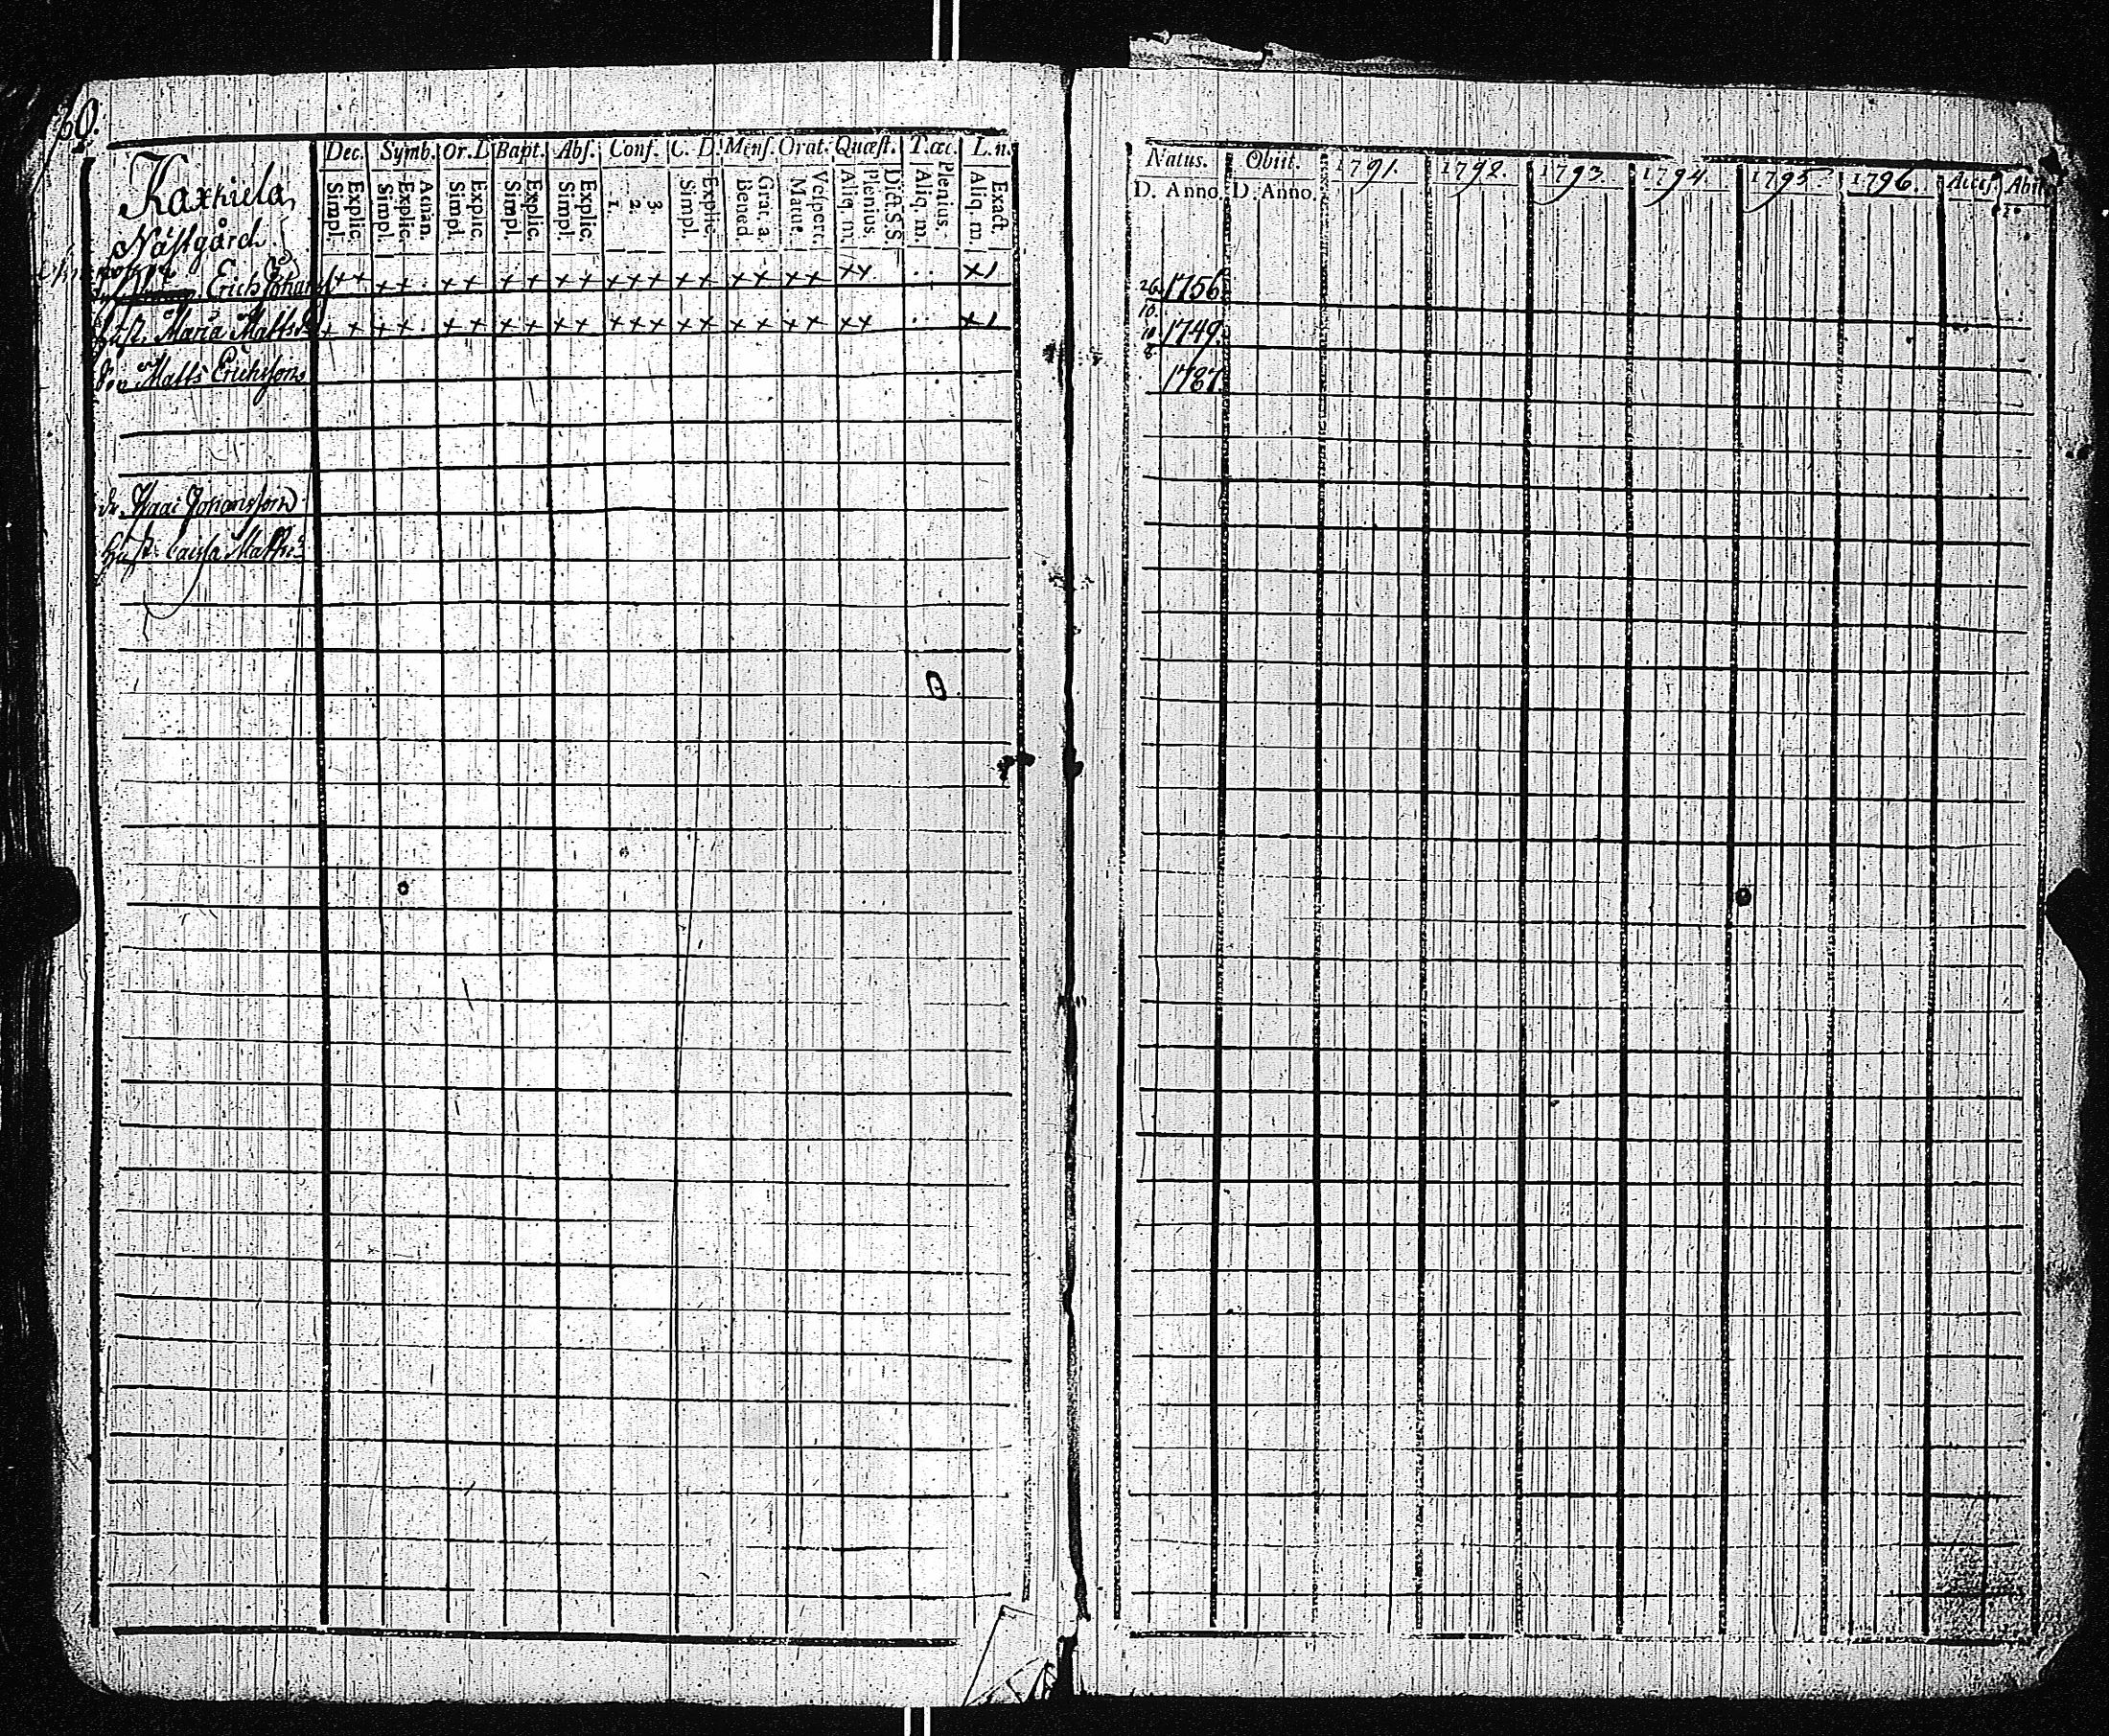 60.
Dec. Symb. Or. D Bapt. Abs. Conf. C. D. Mens. Orat. Quæst. T. œc. L. n.
Explic. Simpl. Athan. Explic. Simpl. Explic. Simpl. Explic. Simpl. Explic. Simpl. 3. 2. 1. Explic. Simpl. Grat. a. Bened. Vespert. Matut. Dict. S.S. Plenius. Aliq. m. Plenius. Aliq. m. Exact. Aliq. m.
Näst gård
Erich Johans
hust. Maria Matts
Son Matts Erichsson
dr. Isaac Johansson
hust. Caisa Matts
Natus. Obiit. 1791. 1792. 1793. 1794. 1795. 1796. Access Abit
D. Anno. D. Anno.
26 1756
10
10 1749
8
1787